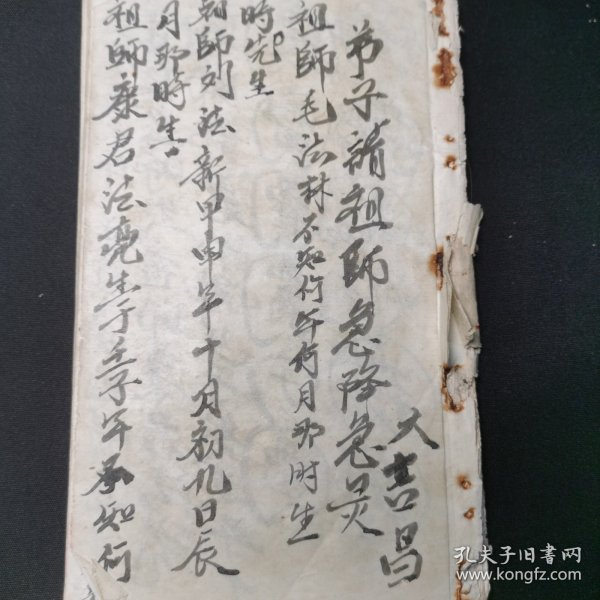 大吉昌
弟子請祖師急降急灵
祖師毛法林不知何年何月那时生
時先生
祖師刘法新甲申年十月初九日辰
月那時生
祖師康君法亮生于壬子年不知何
孔夫子旧书网
www.kongfz.com